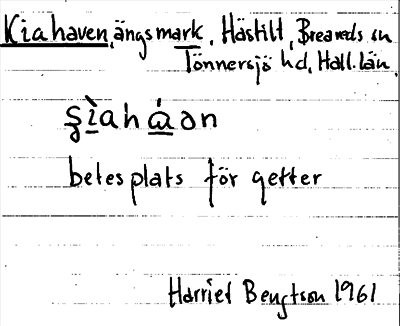 Kiahaven, ängsmark, Hästilt, Breareds sn
Tönnersjö hd, Hall. län
ʂìaháən
betesplats för getter
Harriet Bengtson 1961